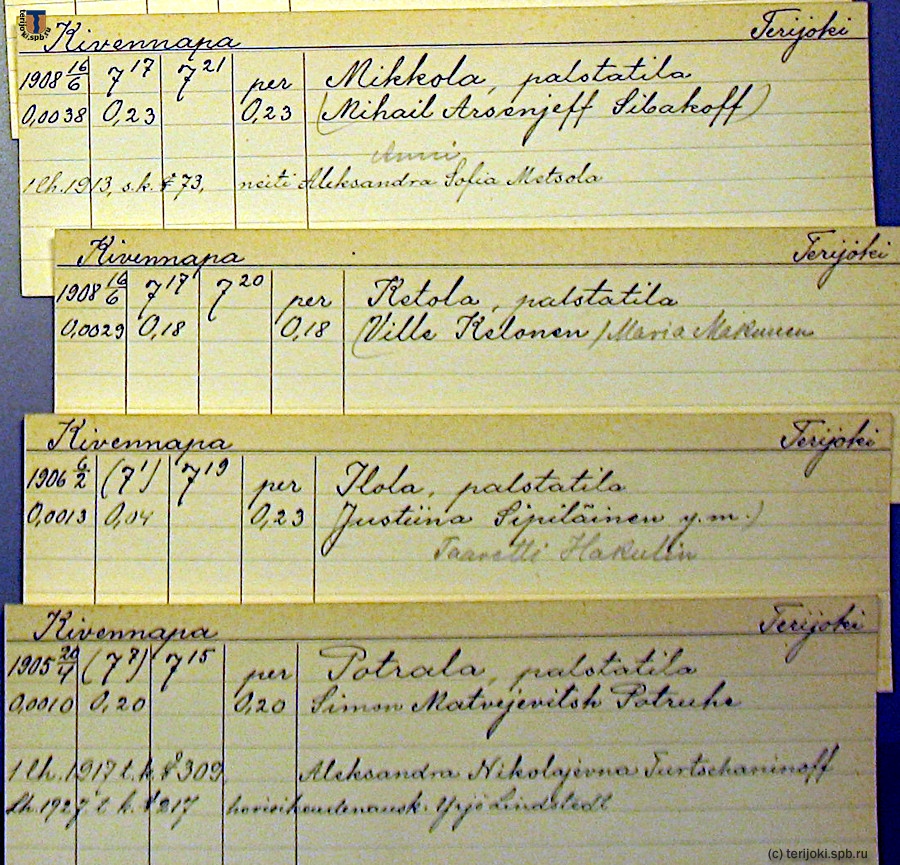 terijoki.spb.ru
Kivennapa Terijoki
1908 16/6 7¹⁷ 7²¹ per Mikkola, palstatila
0,0038 0,23 0,23 (Mihail Arsenjeff Sibakoff)
Anni
1 lh. 1913, s.k. § 73, neiti Aleksandra Sofia Metsola
Kivennapa Terijoki
1908 16/6 7¹⁷ 7²⁰ per Ketola, palstatila
0,0029 0,18 0,18 (Ville Kelonen) Maria Makunen
Kivennapa Terijoki
1906 6/2 (7¹) 7¹⁹ per Ilola, palstatila
0,0013 0,04 0,23 Justiina Sipiläinen y.m.)
Taavetti Hakulin
Kivennapa Terijoki
1905 20/4 (7⁷) 7¹⁵ per Potrala, palstatila
0,0010 0,20 0,20 Simon Matvejevitsh Potruhe
1 lh. 1917 t. k. § 309, Aleksandra Nikolajevna Turtschaninoff
lh. 1927 t. k. § 217 Yrjö Lindstedt
(c) terijoki.spb.ru